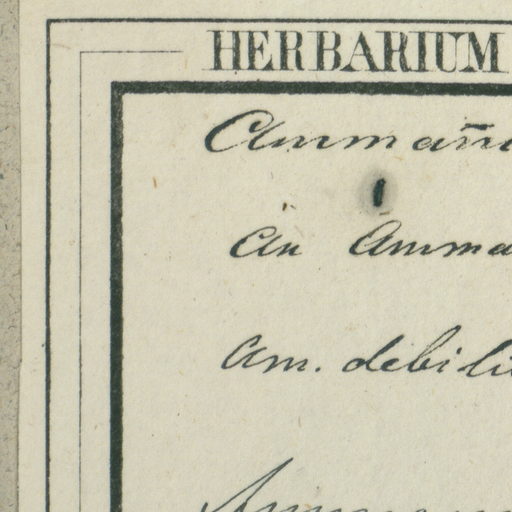 HERBARIUM
Ammañi
an Amma
Am. debilis